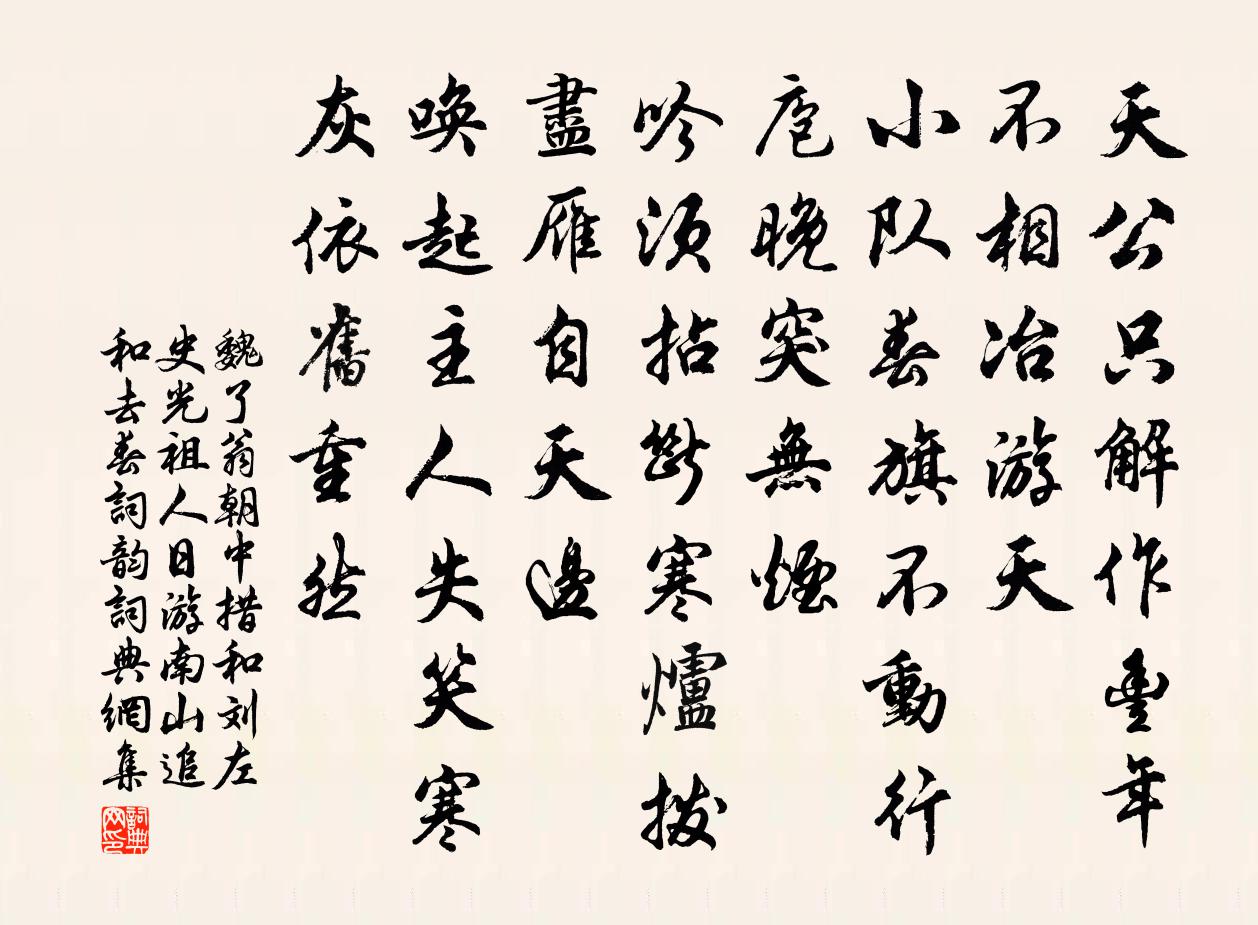 天公只解作豐年
不相冶游天
小队春旗不動行
庖晚突無煙
吟須拈斷寒爐撥
盡雁自天邊
喚起主人失笑寒
灰依舊重然
魏了翁朝中措和刘左
史光祖人日游南山追
和去春詞韵詞典網集
詞典网印